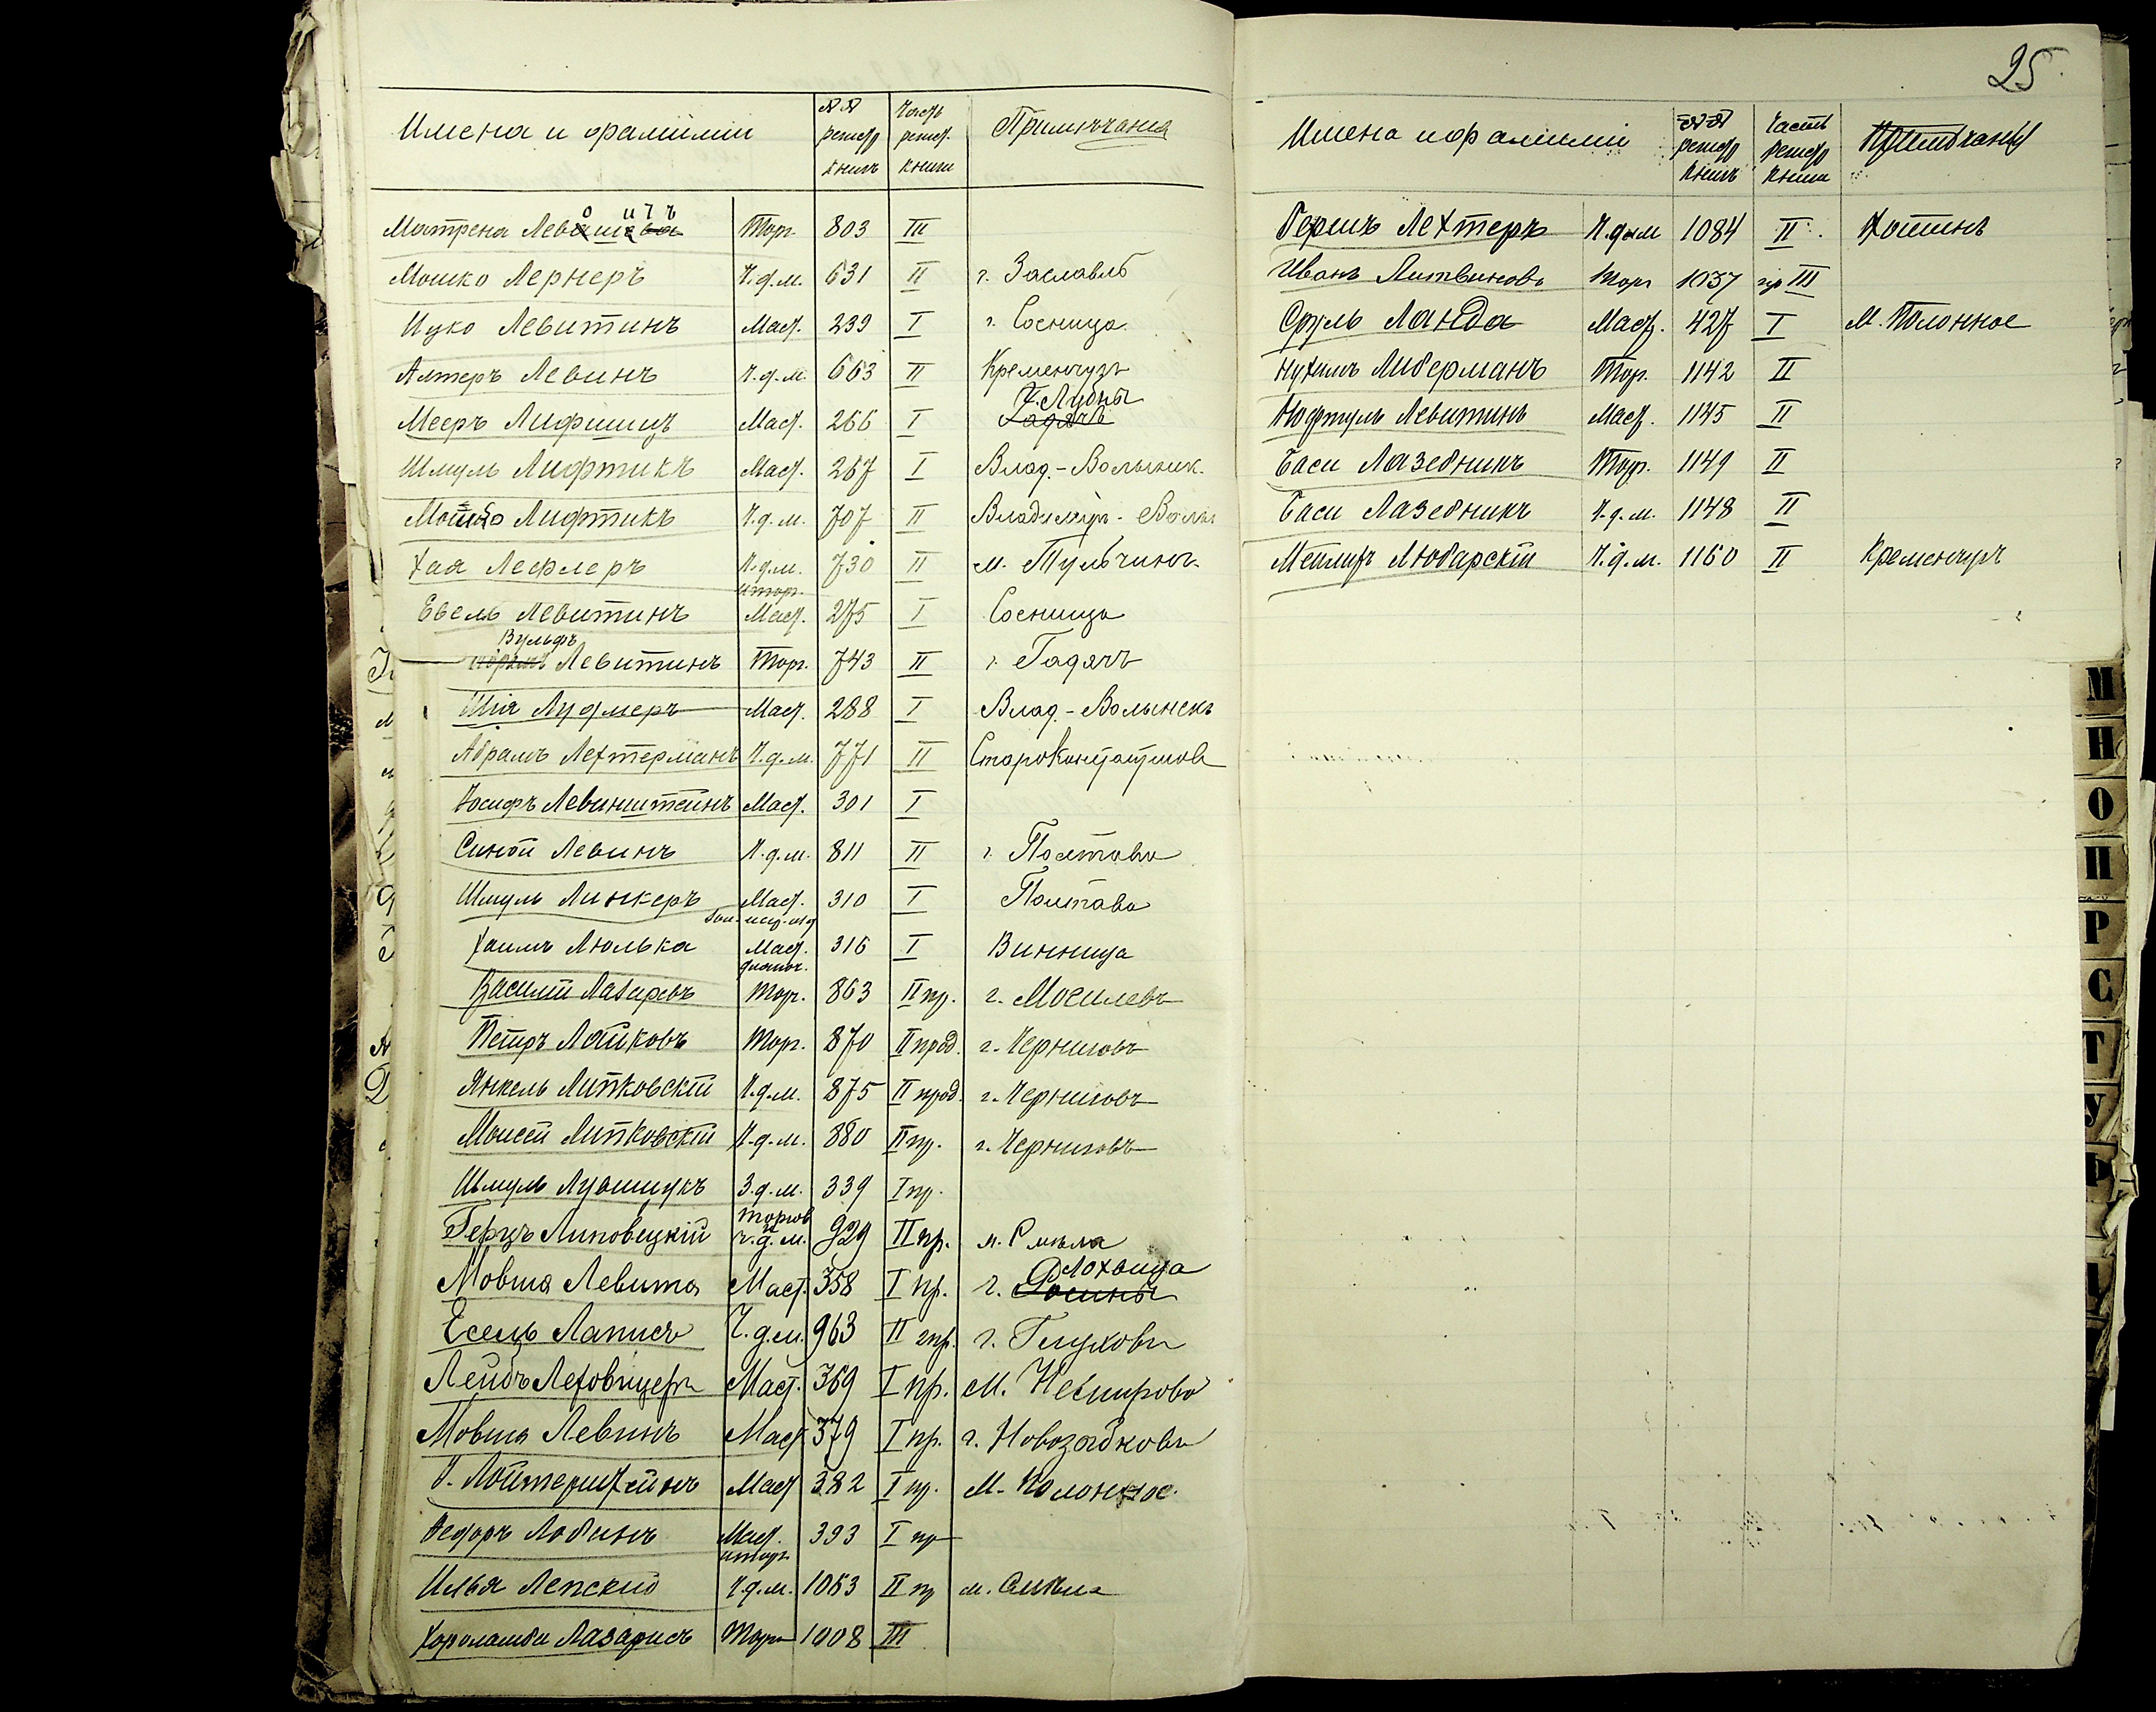 Имена и фамиліи №№ реестр книгъ Часть реест. книги Примѣчанія
Матрена Левошевичъ Торг. 803 III
Мошко Лернеръ Ч.д.м. 631 II г. Заславль
Ицко Левитинъ Маст. 239 I г. Сосница
Алтеръ Левинъ Ч.д.м. 663 II Кременчугъ
Мееръ Лифшицъ Маст. 266 I Г. Лубны
Шмуль Лифтикъ Маст. 267 I Влад.-Волынск.
Лифтикъ Ч.д.м. 707 II Владимір-Волын
Хая Лефлеръ Ч.д.м. и торг. 730 II м. Тульчинъ
Евель Левитинъ Маст. 275 I Сосница
Вульфъ Левитинъ Торг. 743 II г. Гадячъ
Шія Лудмеръ Маст. 288 I Влад.-Волынскъ
Абрамъ Лехтерманъ Ч.д.м. 771 II СтароКонстантиновъ
Іосифъ Левинштейнъ Маст. 301 I
Левинъ Ч.д.м. 811 II г. Полтава
Шмуль Линкеръ Маст. 310 I Полтава
Хаимъ Люлька Маст. 316 I Винница
Василій Лазаревъ Торг. 863 II пр. г. Могилевъ
Петръ Лайковъ Торг. 870 II прод. г. Черниговъ
Янкель Липковскій Ч.д.м. 875 II прод. г. Черниговъ
Моисей Липковскій Ч.д.м. 880 II пр. г. Черниговъ
Шмуль З.д.м. 339 I пр.
Герцъ Липовецкій торгов и ч.д.м. 929 II пр. м. Смѣла
Мовша Левита Маст. 358 I пр. г. Лохвица
Лаписъ Ч.д.м. 963 II пр. г. Глуховъ
Лейбъ Леховицеръ Маст. 369 I пр. М. Немировъ
Мовша Левинъ Маст. 379 I пр. г. Новозыбковъ
Лойтерштейнъ Маст 382 I пр. М. Полонное
Федоръ Лобинъ Маст. и торг. 393 I пр
Илья Лепскій Ч.д.м. 1053 II пр м. Смѣла
Хараламби Лазарисъ Торг 1008 III
25
Имена и фамиліи №№ реестр книгъ Часть реестр книги Примѣчанія
Гершъ Лехтеръ Ч.д.м 1084 II Хотинъ
Иванъ Литвиновъ Торг 1037 пр III
Сруль Ланда Маст. 427 I М. Полонное
Нухимъ Либерманъ Тор. 1142 II
Нафтуль Левитинъ Маст. 1145 II
Баси Лазебникъ Тор. 1149 II
Баси Лазебникъ Ч.д.м. 1148 II
Любарскій Ч.д.м. 1160 II Кременчугъ
М
Н
О
П
Р
С
Т
У